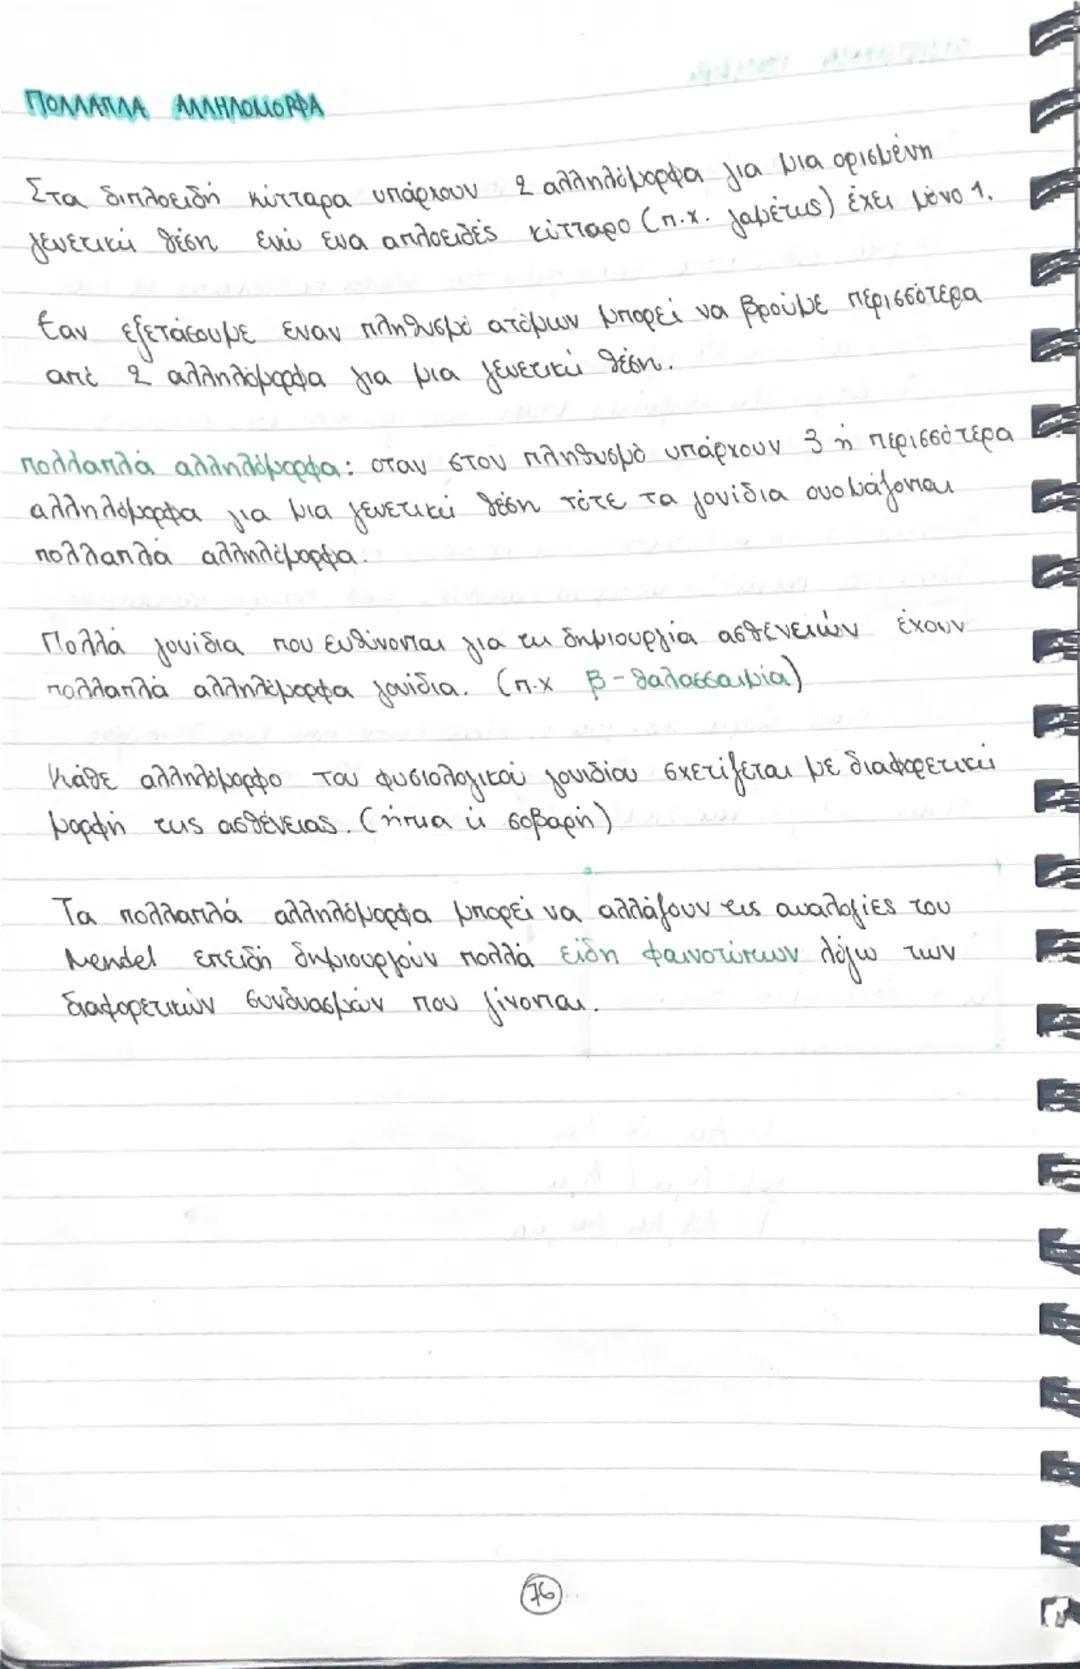 ΠΟΛΛΑΠΛΑ ΑΛΛΗΛΟΜΟΡΦΑ
Στα διπλοειδή κύτταρα υπάρχουν 2 αλληλόμορφα για μια ορισμένη
γενετική θέση ενώ ενα απλοειδές κύτταρο (π.χ. γαμέτης) έχει μόνο 1.
Εαν εξετάσουμε εναν πληθυσμό ατόμων μπορεί να βρούμε περισσότερα
από 2 αλληλόμορφα για μια γενετική θέση.
πολλαπλά αλληλόμορφα: οταν στον πληθυσμό υπάρχουν 3 ή περισσότερα
αλληλόμορφα για μια γενετική θέση τότε τα γονίδια ονομάζονται
πολλαπλά αλληλόμορφα.
Πολλά γονίδια που ευθύνονται για τη δημιουργία ασθενειών έχουν
πολλαπλά αλληλόμορφα γονίδια. (π.χ β-θαλασσαιμία)
Κάθε αλληλόμορφο του φυσιολογικού γονιδίου σχετίζεται με διαφορετική
μορφή της ασθένειας. (ήπια ή σοβαρή)
Τα πολλαπλά αλληλόμορφα μπορεί να αλλάζουν τις αναλογίες του
Mendel επειδή δημιουργούν πολλά είδη φαινοτύπων λόγω των
διαφορετικών συνδυασμών που γίνονται.
76